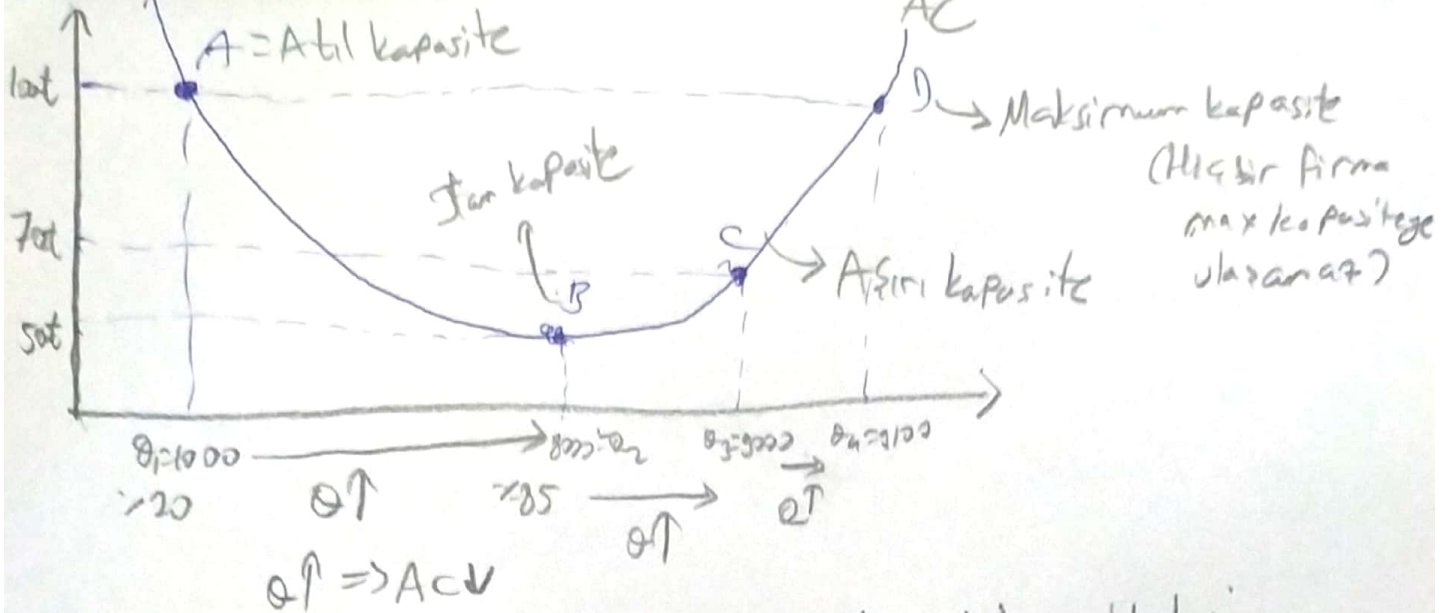 AC
A = Atıl kapasite
100t
D → Maksimum kapasite
(Hiçbir firma
max kapasiteye
ulaşamaz)
Tam kapasite
70t
C
→ Aşırı kapasite
B
50t
Q₁=1000
8000=Q₂
Q₃=9000
Q₄=9100
%20
Q↑
%85
Q↑
Q↑
Q↑ => AC↓